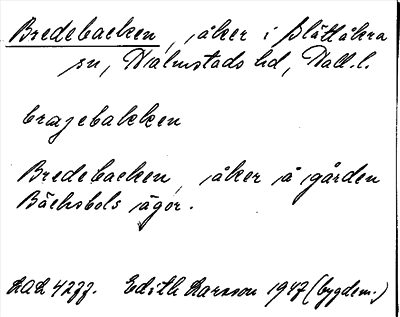 Bredebacken, åker i Slättåkra
sn, Halmstads hd, Hall. l.
bræjebakken
Bredebacken, åker å gården
Bäcksbols ägor.
LAL 4277. Edith Larsson 1947 (bygdem.)